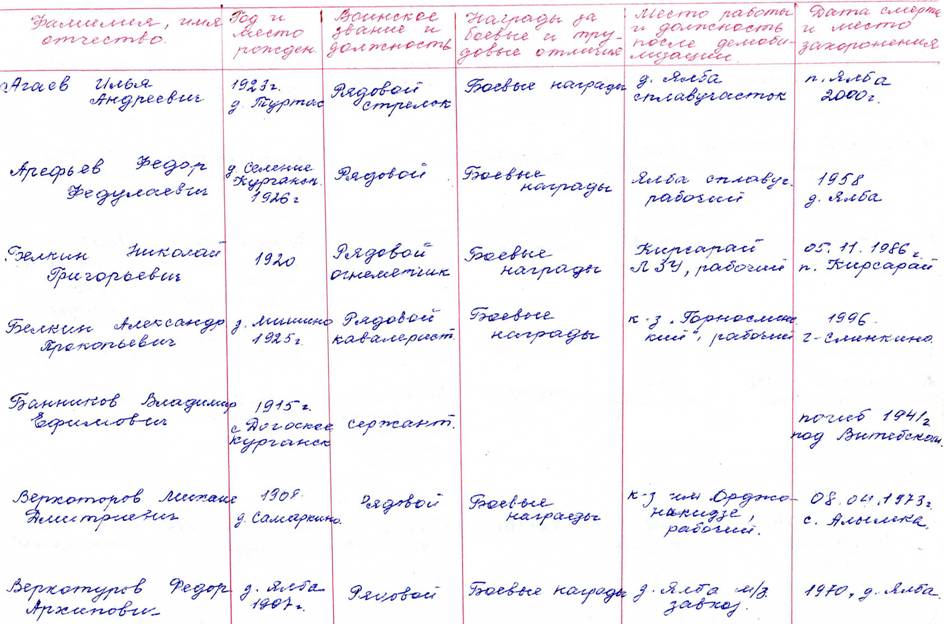 Фамилия, имя отчество.
Год и место рожден.
Воинское звание и должность
Награды за боевые и трудовые отличия
Место работы и должность после демобилизации.
Дата смерти и место захоронения
Агаев Илья Андреевич
1923г. д. Туртас
Рядовой стрелок
Боевые награды
д. Ялба сплавучасток
п. Ялба 2000г.
Арефьев Федор Федулаевич
д. Селение Курганск. 1926г
Рядовой
Боевые награды
Ялба сплавуч. рабочий
1958 д. Ялба
Белкин Николай Григорьевич
1920
Рядовой огнеметчик
Боевые награды
Кирсарай ЛЗУ, рабочий
05.11.1986г. п. Кирсарай
Белкин Александр Прокопьевич
д. Мишино 1925г.
Рядовой кавалерист.
Боевые награды
к-з "Горнослинкский", рабочий
1996. Г-Слинкино.
Банников Владимир Ефимович
1915г. Курганск
сержант.
погиб 1941г под Витебском.
Верхоторов Михаил Дмитриевич
1908. д. Самаркино.
Рядовой
Боевые награды
к-з им Орджонакидзе, рабочий.
08.04.1973г. с. Алымка.
Верхотуров Федор Архипович
д. Ялба 1907г.
Рядовой
Боевые награды
д. Ялба м/з. завхоз.
1970, д. Ялба.